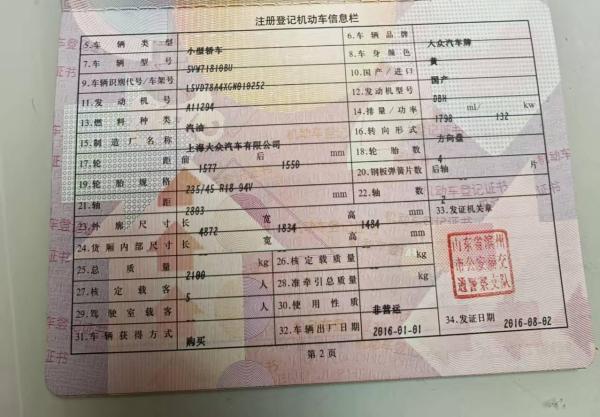 注册登记机动车信息栏
5.车辆类型 小型轿车 6.车辆品牌 大众汽车牌
7.车辆型号 SVW71810BU 8.车身颜色 黄
9.车辆识别代号/车架号 LSVD78A4XGN019252 10.国产/进口 国产
11.发动机号 A11294 12.发动机型号 DBH
13.燃料种类 汽油 14.排量/功率 1798 ml/ 132 kw
15.制造厂名称 上海大众汽车有限公司 16.转向形式 方向盘
17.轮距 前 1577 后 1550 mm 18.轮胎数 4
19.轮胎规格 235/45 R18 94V 20.钢板弹簧片数 后轴 片
21.轴距 2803 mm 22.轴数 2
23.外廓尺寸 长 4872 宽 1834 高 1484 mm 33.发证机关章
24.货厢内部尺寸 长 宽 高 mm
25.总质量 2100 kg 26.核定载质量 kg
27.核定载客 5 人 28.准牵引总质量 kg
29.驾驶室载客 人 30.使用性质 非营运
31.车辆获得方式 购买 32.车辆出厂日期 2016-01-01 34.发证日期 2016-08-02
山东省滨州
市公安局交
通警察支队
第2页